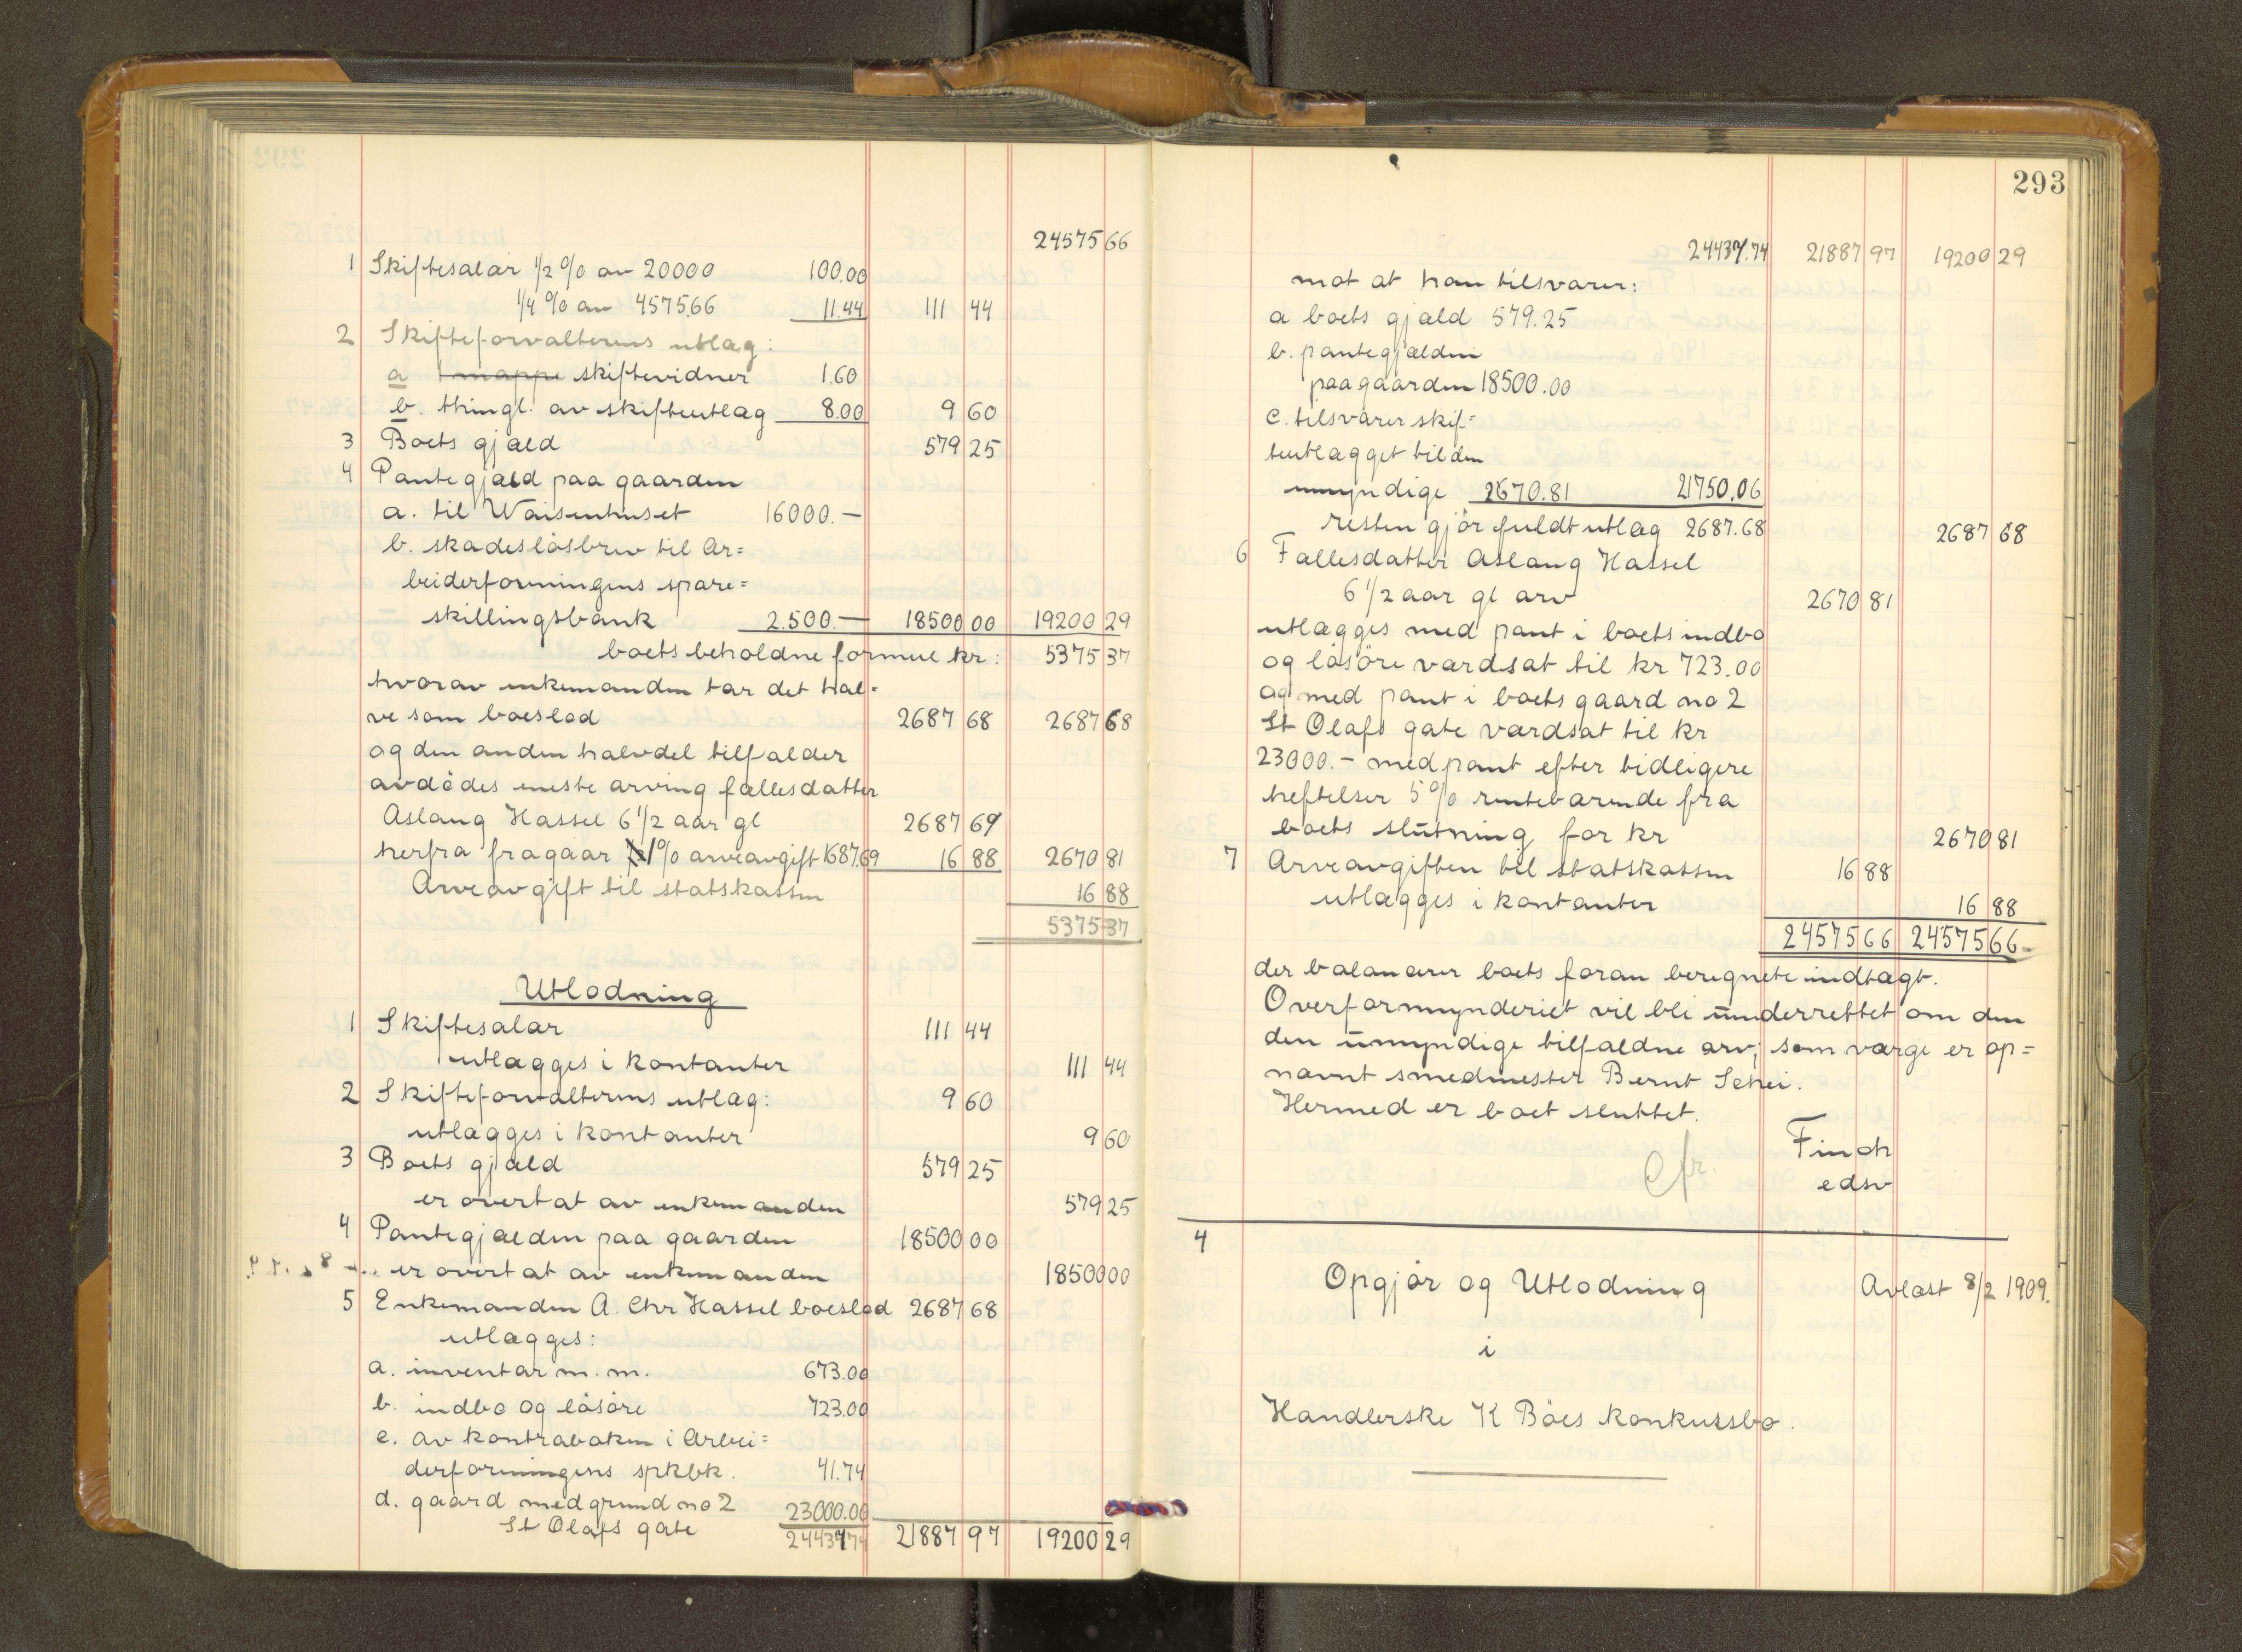 24575 66
1 Skiftesalær 1/2 % av 20000 100.00
1/4 % av 4575.66 11.44 111 44
2 Skifteforvalterens utlæg:
a 1 mappe skiftevidner 1.60
b. thingl. av skifteutlæg 8.00 9 60
3 Boets gjæld 579 25
4 Pantegjæld paa gaarden
a. til Waisenhuset 16000.—
b. skadeslösbrev til Ar=
beiderforeningens spare=
skillingsbank 2.500.— 18500 00 19200 29
boets beholdne formue kr: 5375 37
hvorav enkemanden tar det hal=
ve som boeslod 2687 68 2687 68
og den anden halvdel tilfalder
avdödes eneste arving fællesdatter
Aslaug Hassel 6 1/2 aar gl 2687 69
herfra fragaar 1% arveavgift 1687.69 16 88 2670 81
Arveavgift til statskassen 16 88
5375 37
Utlodning
1 Skiftesalær 111 44
utlægges i kontanter 111 44
2 Skifteforvalterens utlæg: 9 60
utlægges i kontanter 9 60
3 Boets gjæld 579 25
er overtat av enkemanden 579 25
4 Pantegjælden paa gaarden 18500 00
er overtat av enkemanden 18500 00
5 Enkemanden A. Chr Hassel boeslod 2687 68
utlægges:
a. inventar m. m. 673.00
b. indbo og lösöre 723.00
c. av kontraboken i Arbei=
derforeningens spkbk. 41.74
d. gaard med grund no 2 23000.00
St Olafs gate 24437 74 21887 97 19200 29
293
24437.74 21887 97 19200 29
mot at han tilsvarer:
a boets gjæld 579.25
b. pantegjælden
paa gaarden 18500.00
c. tilsvarer skif=
teutlægget til den
umyndige 2670.81 21750.06
resten gjör fuldt utlæg 2687.68 2687 68
6 Fællesdatter Aslaug Hassel
6 1/2 aar gl arv 2670 81
utlægges med pant i boets indbo
og lösöre værdsat til kr 723.00
og med pant i boets gaard no 2
St Olafs gate værdsat til kr
23000.— med pant efter tidligere
heftelser 5% rentebærende fra
boets slutning for kr 2670 81
7 Arveavgiften til statskassen 16 88
utlægges i kontanter 16 88
24575 66 24575 66
der balancerer boets foran beregnete indtægt.
Overformynderiet vil bli underrettet om den
den umyndige tilfaldne arv, som værge er op=
nævnt smedmester Bernt Schei.
Hermed er boet sluttet.
Finch
edsv
cfr.
4
Opgjör og Utlodning Avlæst 8/2 1909.
i
Handlerske K Böes konkursbo.